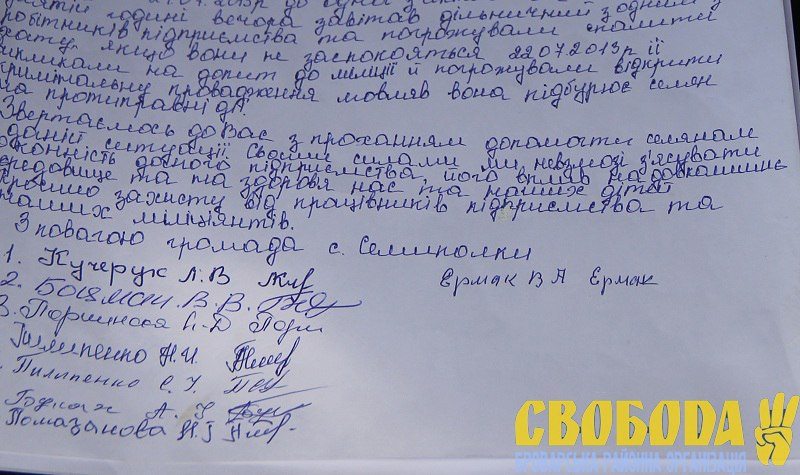 годині вечора завітав дільничний з одним з
робітників підприємства та погрожували спалити
хату, якщо вони не заспокояться 22.07.2013р її
викликали на допит до міліції й погрожували відкрити
кримінальне провадження мовляв вона підбурює селян
на протиправні дії.
Звертаємось до Вас з проханням допомогти селянам
в данній ситуації. Своїми силами ми невзмозі з'ясувати
законність данного підприємства, його вплив на довколишнє
середовище та на здоров'я нас та наших дітей
Просимо захисту від працівників підприємства та
наших міліціянтів.
З повагою громада с. Семиполки
1. Кучерук Л. В
Єрмак В А Єрмак
2. Боцман. В. В.
3.
Пилипенко Н. И.
Пилипенко С. У.
А. У
Помазанова Н. І
СВОБОДА
БРОВАРСЬКА РАЙОННА ОРГАНІЗАЦІЯ